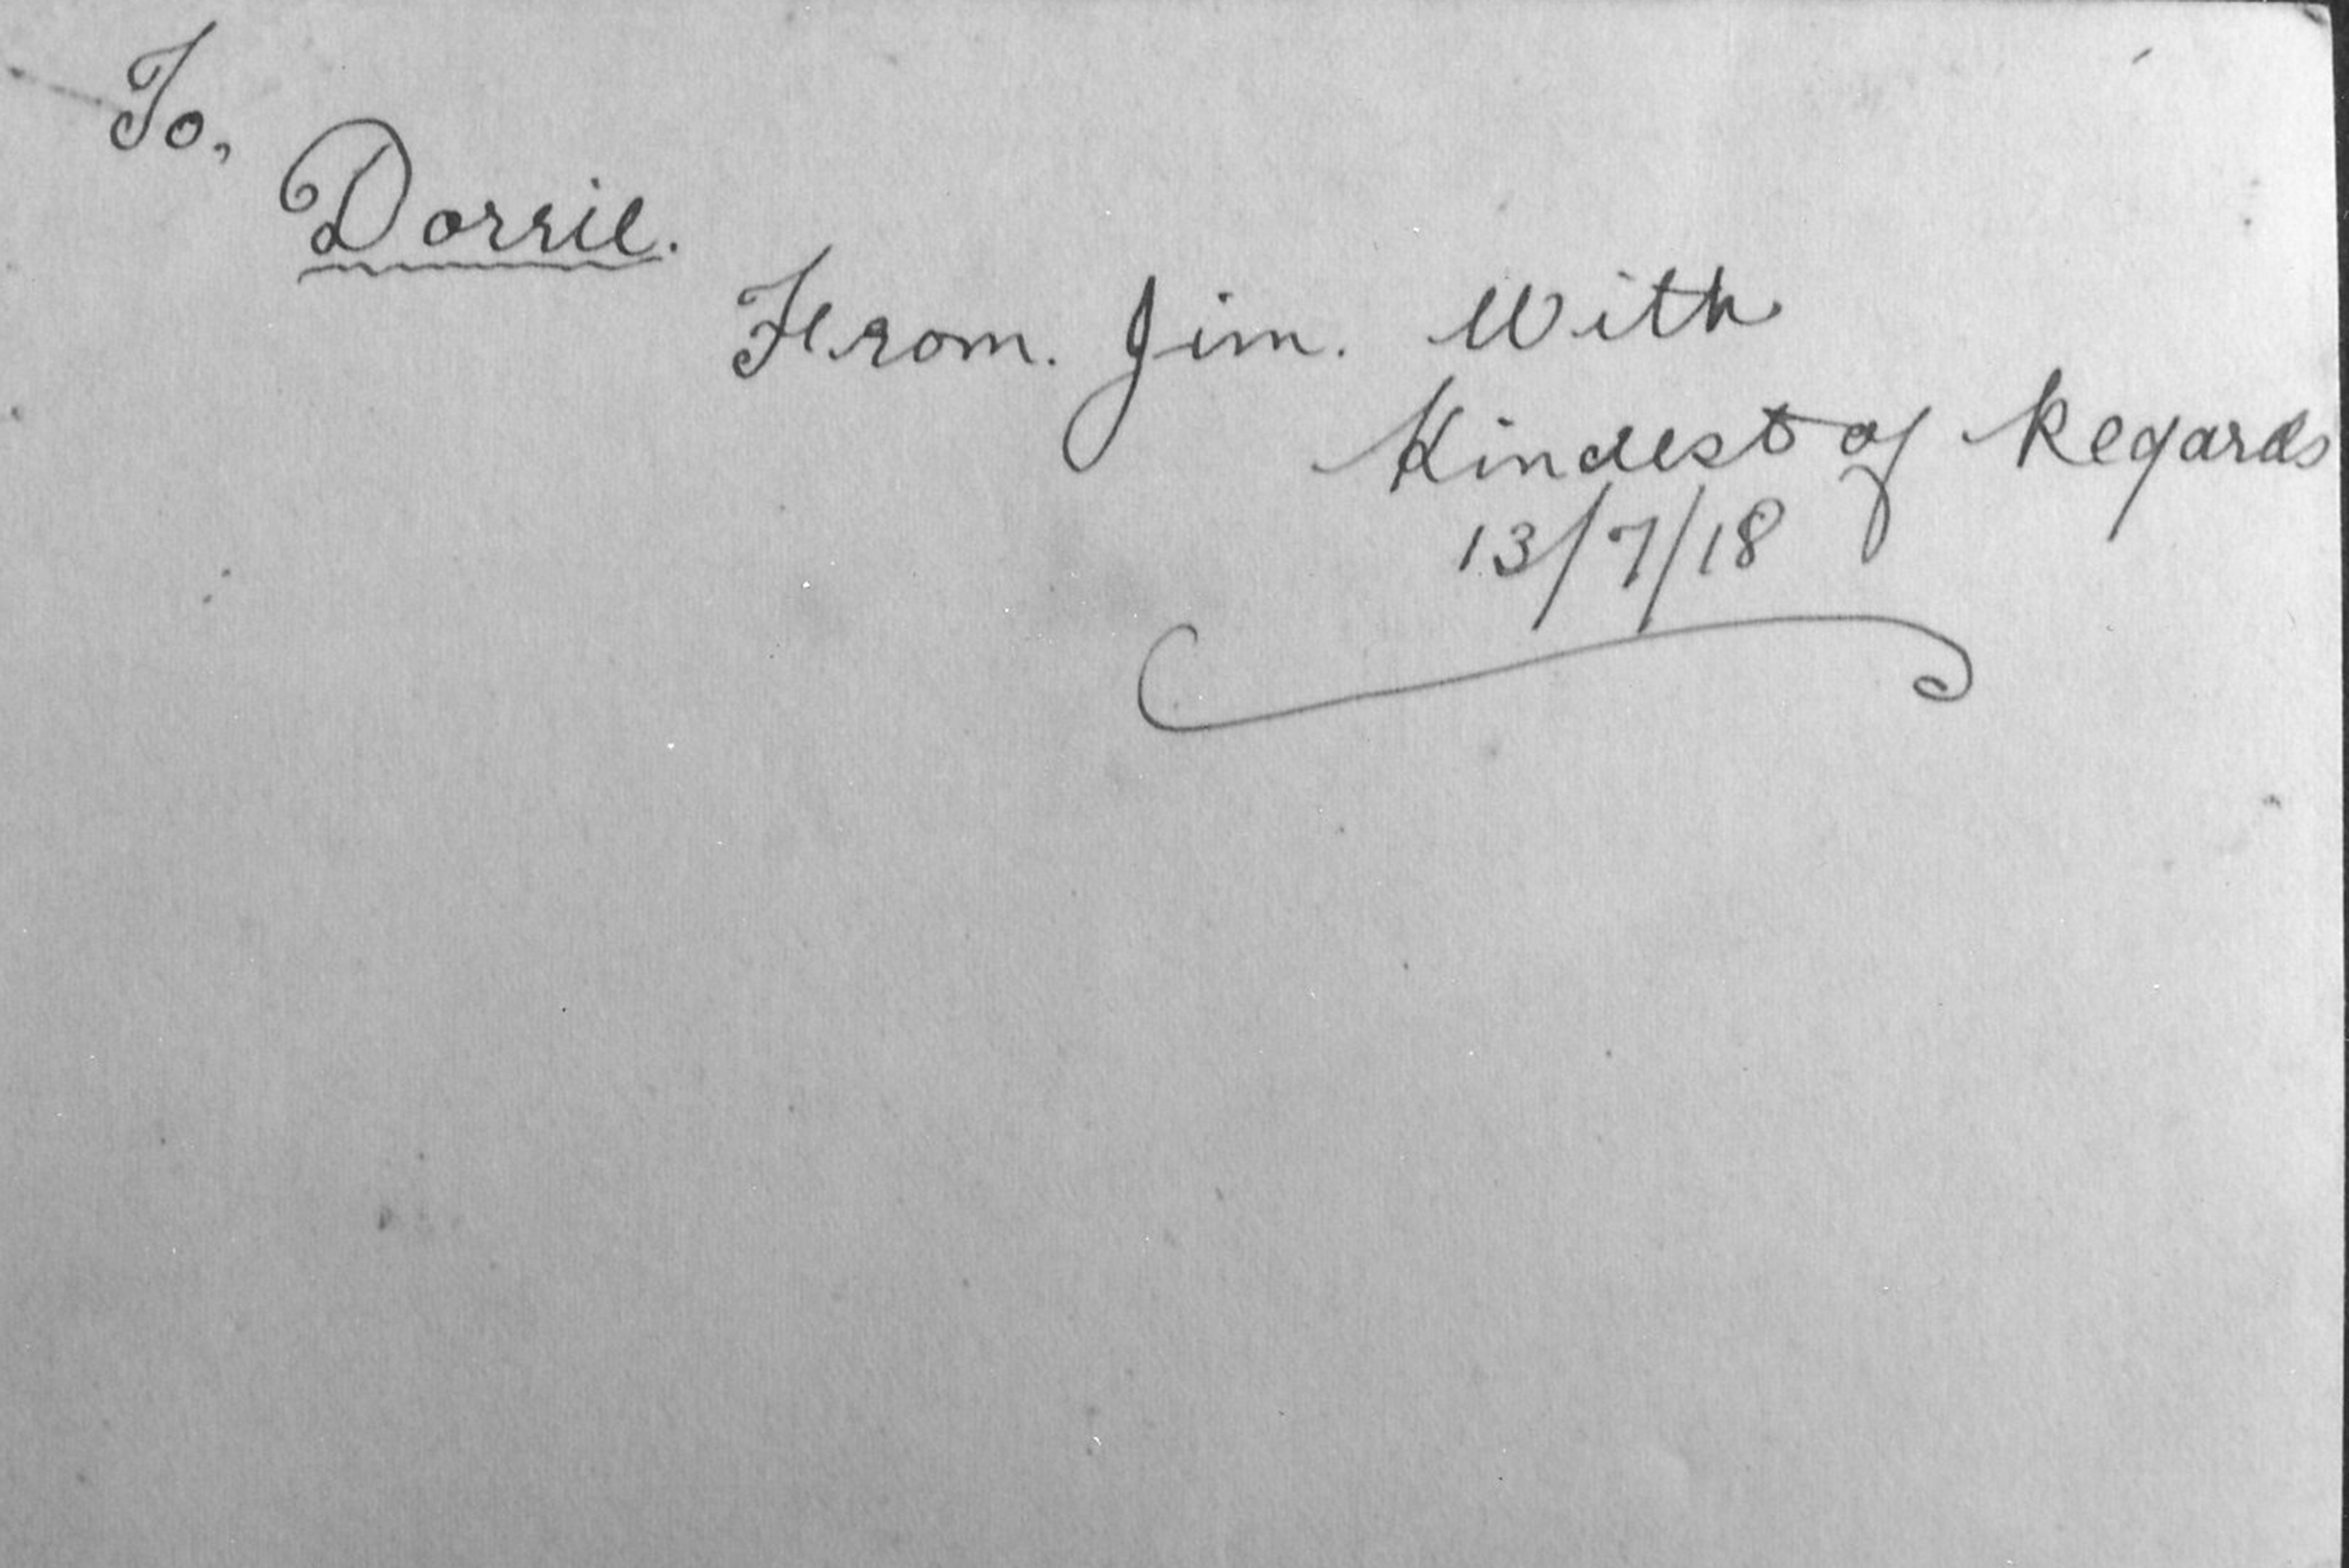 To,
Dorrie.
From. Jim. With
Kindest of Regards
13/7/18